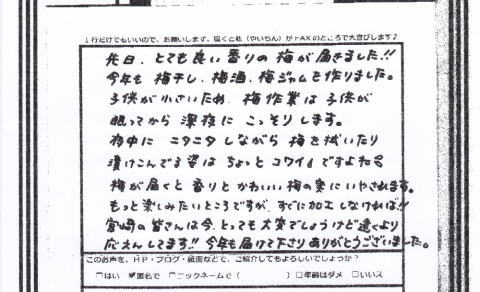 1行だけでもいいので、お願いします。届くと私(やいちん)がFAXのところで大喜びします♪
先日、とても良い香りの梅が届きました!!
今年も梅干し、梅酒、梅ジャムを作りました。
子供が小さいため、梅作業は子供が
眠ってから深夜にこっそりします。
夜中にニタニタしながら梅を拭いたり
漬けこんでる姿はちょっとコワイですよね
梅が届くと香りとかわいい梅の実にいやされます。
もっと楽しみたいところですが、すぐに加工しなければ!!
宮崎の皆さんは今、とっても大変でしょうけど遠くより
応えんしてます!! 今年も届けて下さりありがとうございました。
このお声を、HP・ブログ・紙面などで、ご紹介してもよろしいでしょうか?
□はい ☑匿名で □ニックネームで( ) □年齢はダメ □いいえ